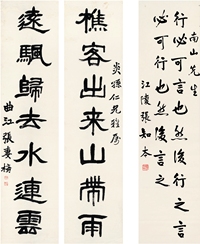 南山先生
行必可言也然後行之言
必可行也然後言之
江陵張知本
炎孫仁兄雅屬
樵客出來山帶雨
遠颿歸去水連雲
曲江張農